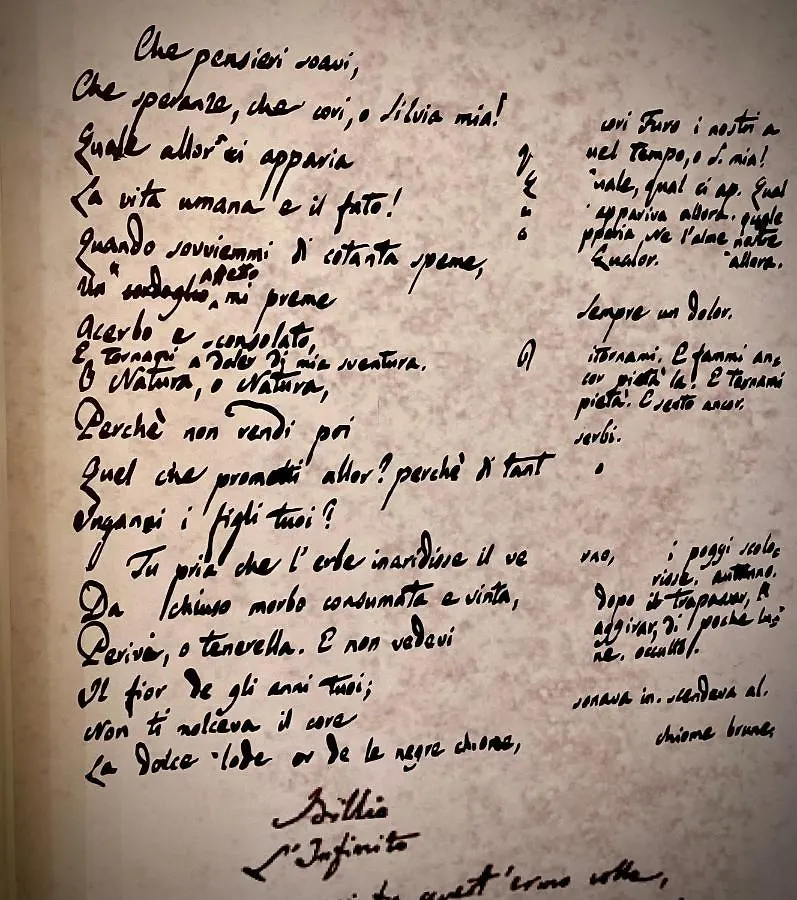 Che pensieri soavi,
Che speranze, che cori, o Silvia mia!
Quale allor ci apparia
La vita umana e il fato!
Quando sovviemmi di cotanta speme,
affetto
Un mi preme
Acerbo e sconsolato,
E tornami a doler di mia sventura.
O Natura, o Natura,
Perchè non rendi poi
Quel che prometti allor? perchè di tant
Inganni i figli tuoi?
Tu pria che l'erbe inaridisse il ve
Da chiuso morbo consumata e vinta,
Perivi, o tenerella. E non vedevi
Il fior de gli anni tuoi;
Non ti molceva il core
La dolce lode or de le negre chiome,
cori Furo i nostri a
nel tempo, o S. mia!
uale, qual ci ap. Qual
appariva allora. quale
pparia Ne l'alme nostre
Qualor. allora.
sempre un dolor.
itornami. E fammi an
cor pietà la. E tornami
pietà. E sento ancor.
serbi.
o
rno, i poggi scolo
risse. autunno.
dopo il trapassar,
aggirar, di poche lu
ne. occulto.
sonava in. scendeva al.
chiome brune,
L'Infinito
quest'ermo colle,